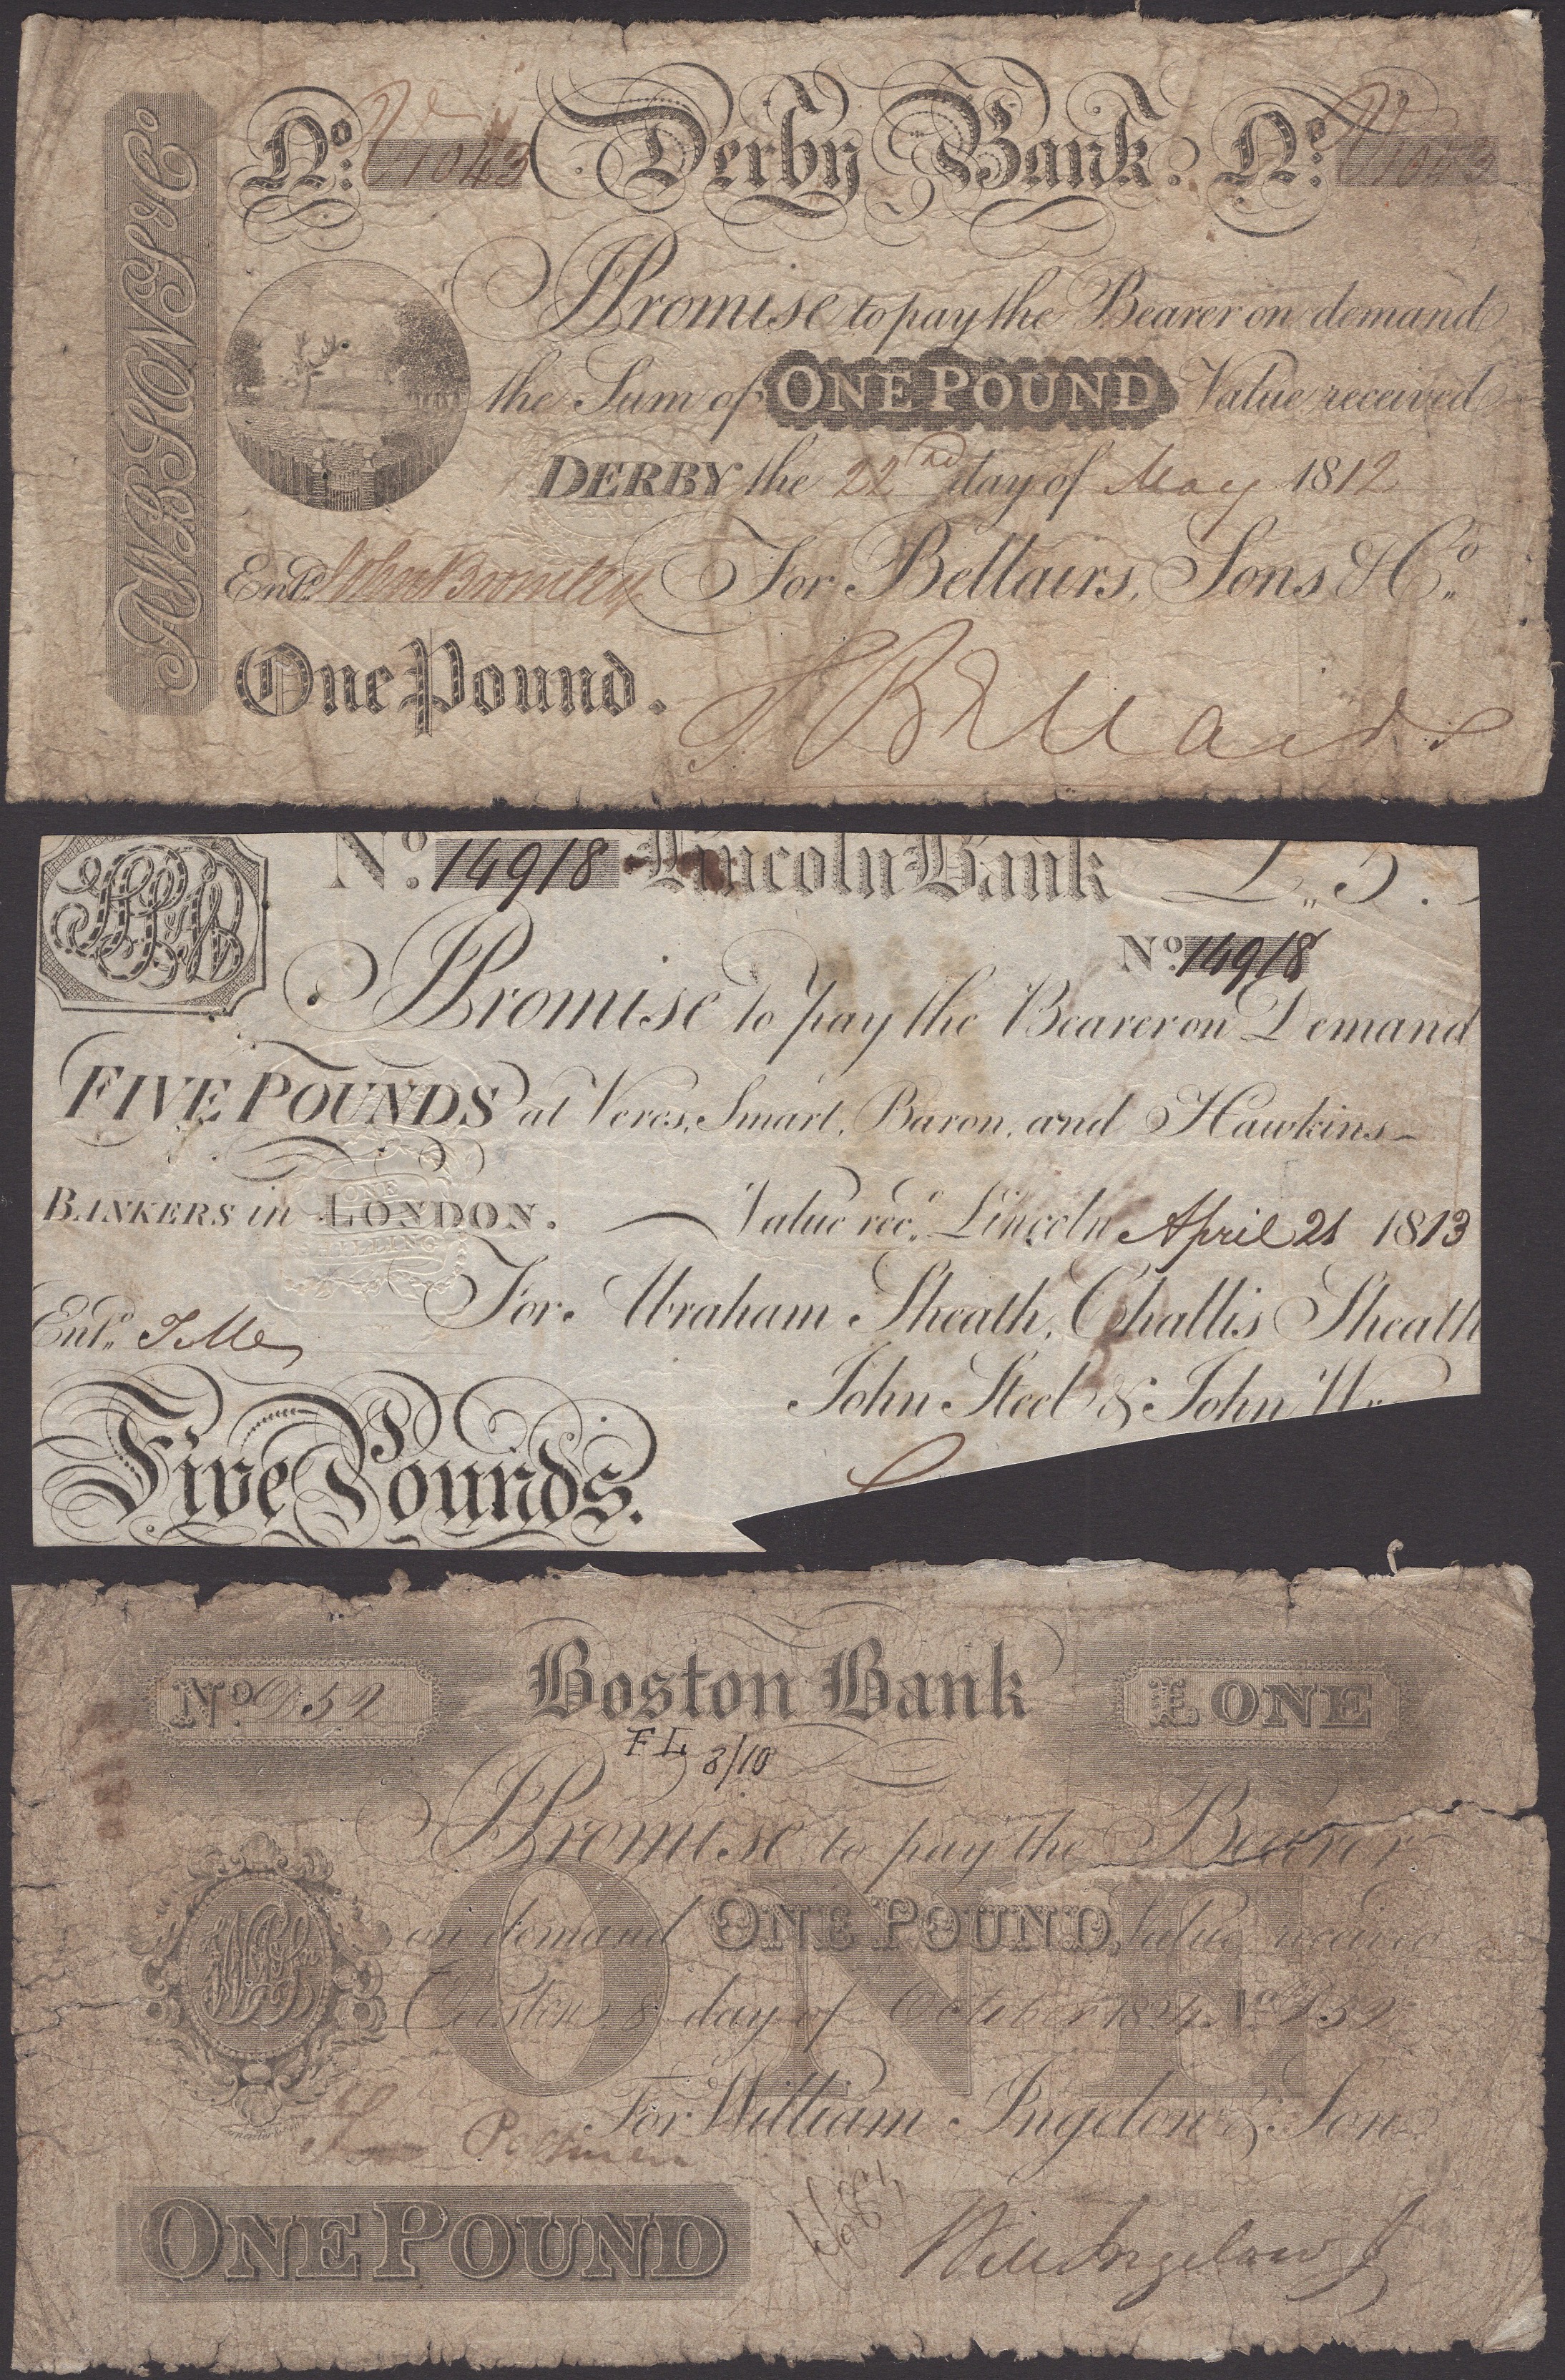 AW BSSONS & Co
No. 1043 Derby Bank. No. 1043
I Promise to pay the Bearer on demand
the Sum of ONE POUND Value received
DERBY the 22nd day of May 1812
Entd. John Bromley For Bellairs, Sons & Co.
One Pound.
No. 14918 Lincoln Bank £ 5.
No. 14918
I Promise to pay the Bearer on Demand
FIVE POUNDS at Veres, Smart, Baron, and Hawkins
BANKERS in LONDON. Value recd. Lincoln April 21 1813
ONE
SHILLING
For Abraham Sheath, Challis Sheath
Entd.
John Steel & John
Five Pounds.
No. 952 Boston Bank £ ONE
FL 8/10
I Promise to pay the Bearer
on demand ONE POUND, Value received
ONE
Boston 8 day of October 1824 No 952
For William Ingelow & Son
ONE POUND Will Ingelow J